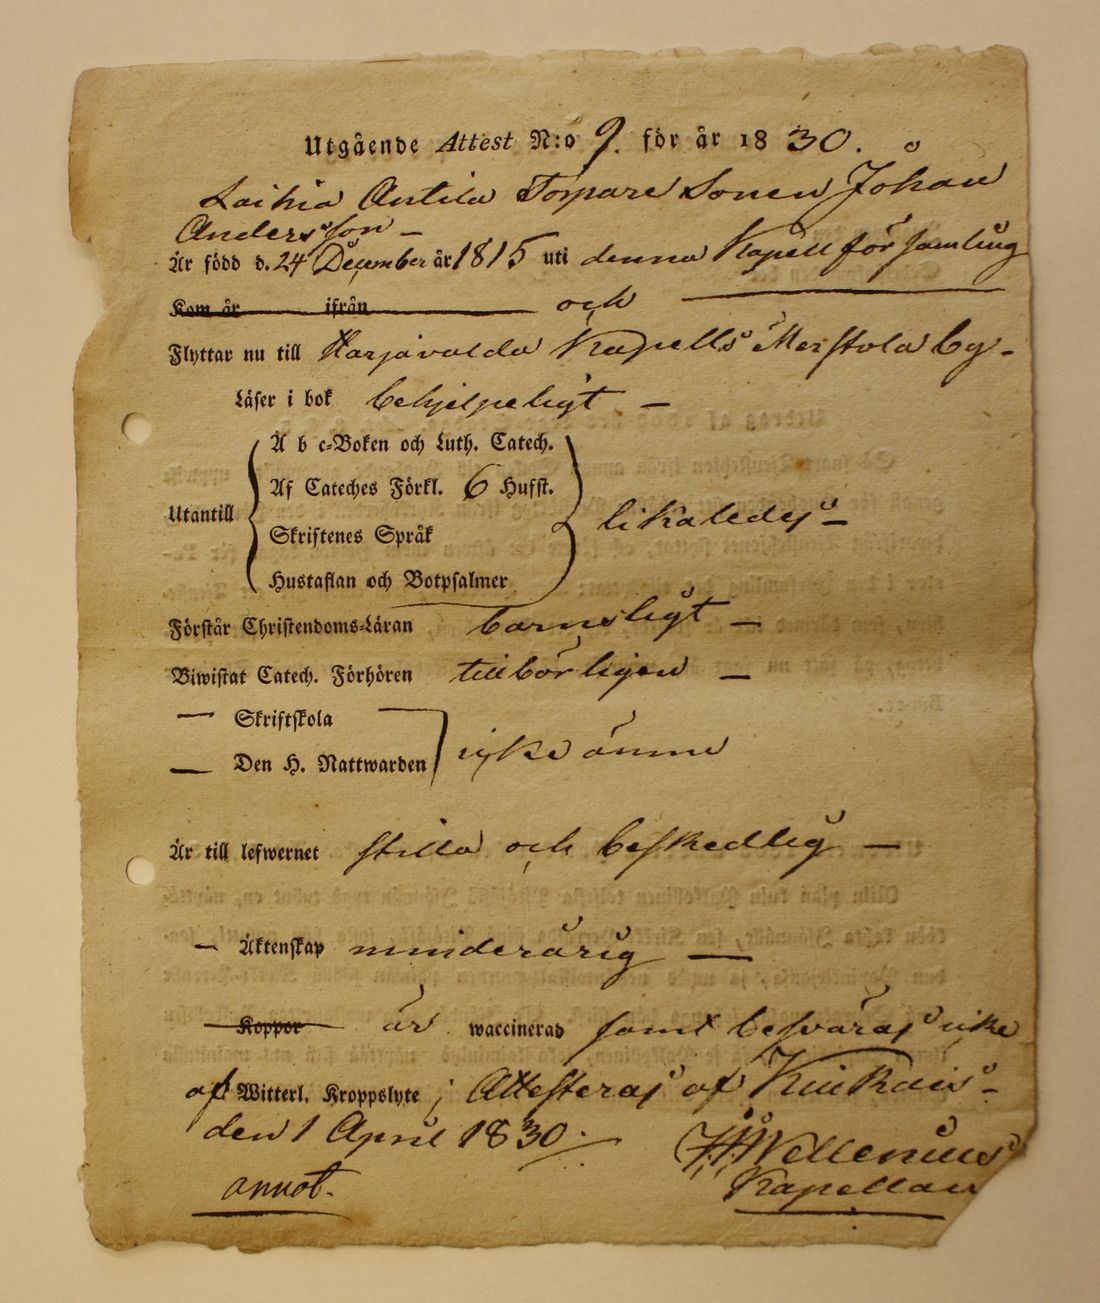 Utgående Attest N:o 9. för år 1830.
Laihia Antila Torpare Sonen Johan
Andersson –
Är född d. 24 December år 1815 uti denna Kapell församling
Kom år ifrån och
Flyttar nu till Harjavalda Kapells Merstola by –
Läser i bok behjelpeligt –
A b c-Boken och Luth. Catech.
Af Cateches Förkl. 6 Hufst.
Utantill likaledes –
Skriftenes Språk
Hustaflan och Botpsalmer
Förstår Christendoms-Läran barnsligt –
Biwistat Catech. Förhören tillbörligen –
— Skriftskola
— Den H. Nattwarden icke ännu
Är till lefwernet stilla och beskedlig —
— Äktenskap minderårig —
Koppor är waccinerad samt besväras icke
af Witterl. Kroppslyte; Attesteras af Kiukais –
den 1 April 1830.
Wellenius
annot. Kapellan